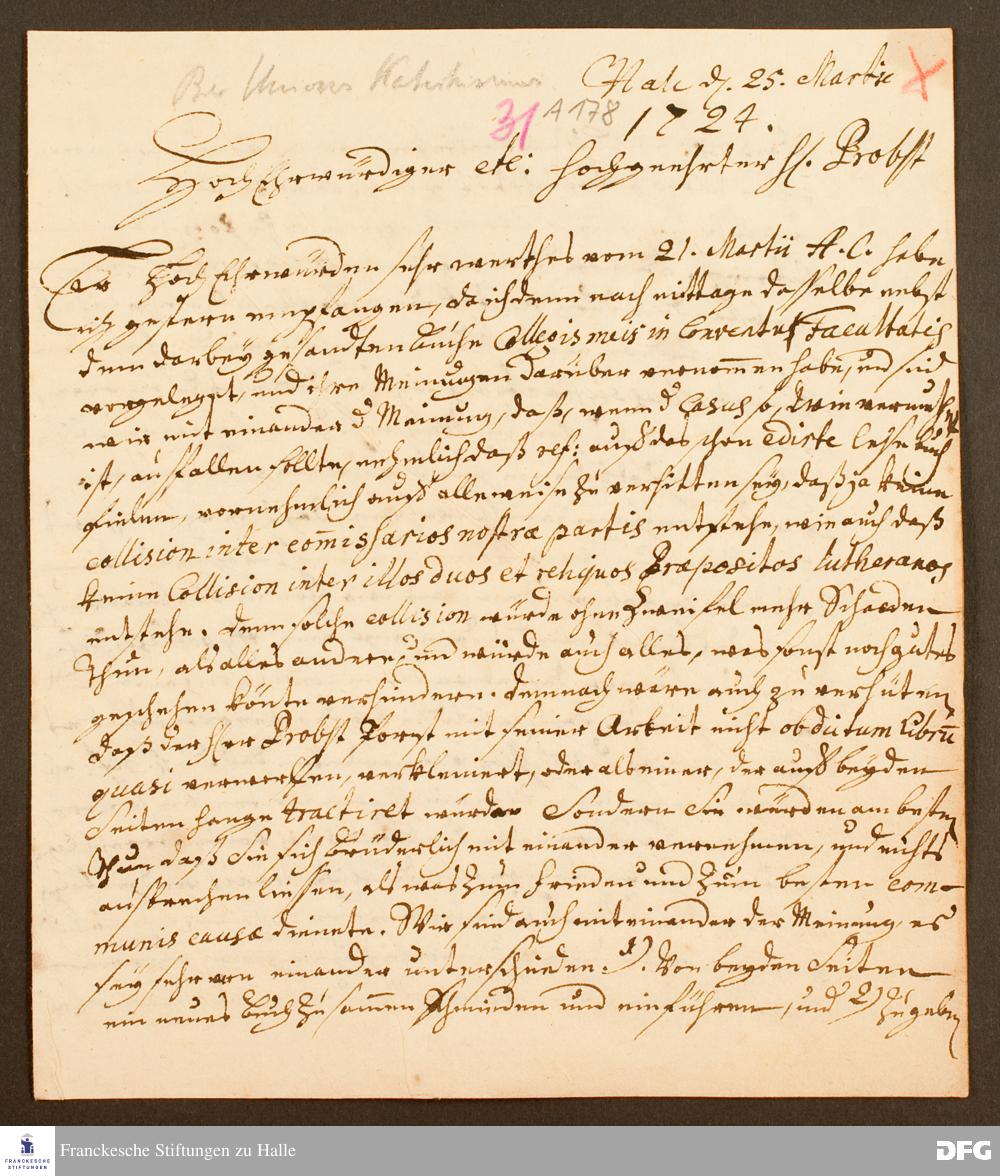 Bey Unions Katechismus
Hale d. 25. Martii
31 A 178
1724.
HochEhrwürdiger etc: hochgeehrter H. Probst
Ew HochEhrwürden sehr werthes vom 21. Martii A. C. habe
ich gestern empfangen, da ich denn nach mittage dasselbe nebst
dem darbey gesandten buche Collegis meis in Conventu Facultatis
vorgeleget, und ihre Meinungen darüber vernom̅en habe, und sind
wir mit einander d Meinung, daß, wenn d Casus so, wie vermuthet
ist, ausfallen sollte, nehmlich daß ref: auf das schon edirte lesebuch
fielen, vornehmlich auf alle weise zu verhüten sey, daß ja keine
collision inter com̅issarios nostræ partis entstehe, wie auch daß
keine Collision inter illos duos et reliquos Præpositos lutheranos
entstehe. denn solche collision würde ohne Zweifel mehr Schaden
thun, als alles andere, und würde auch alles, was sonst noch gutes
geschehen könte verhindern. demnach wäre auch zu verhüten
daß der Herr Probst Porst mit seiner Arbeit nicht ob dictum libru̅
quasi verworffen, verkleinert, oder als einer, der auf beyden
Seiten hange tractiret würde. Sondern Sie würden am besten
thun daß Sie sich brüderlich mit einander vernehmen, und nichts
ausbrechen liessen, als was zum frieden und zum besten com-
munis causæ dienete. Wir sind auch mit einander der Meinung, es
sey sehr von einander unterschieden. 1). Von beyden Seiten
ein neues buch zusam̅en schmieden und einführen, und 2) zugeben
FRANCKESCHE
STIFTUNGEN
Franckesche Stiftungen zu Halle
DFG